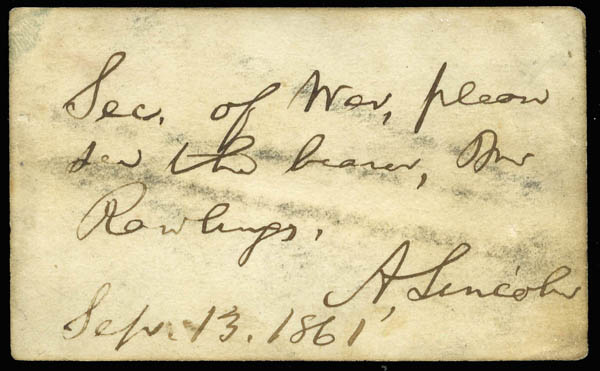 Sec. of War, please
see the bearer, Mr
Rawlings.
A. Lincoln
Sep. 13. 1861